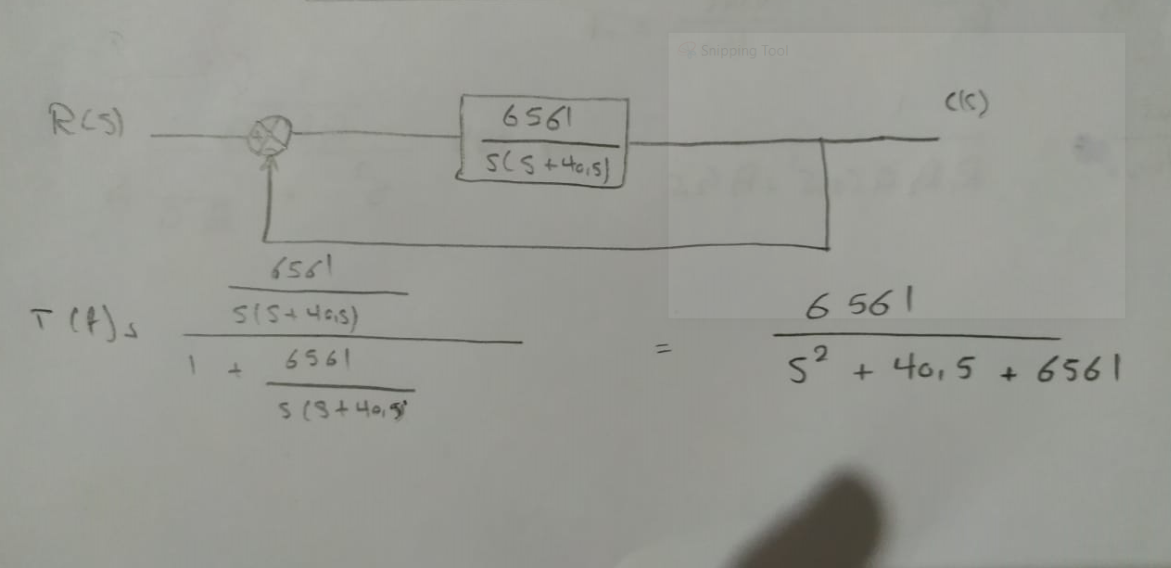 Snipping Tool
R(s)
6561
s(s+40,5)
C(s)
6561
s(s+40,5)
T(t) =
1 + 6561
s(s+40,5)
=
6561
s² + 40,5 + 6561